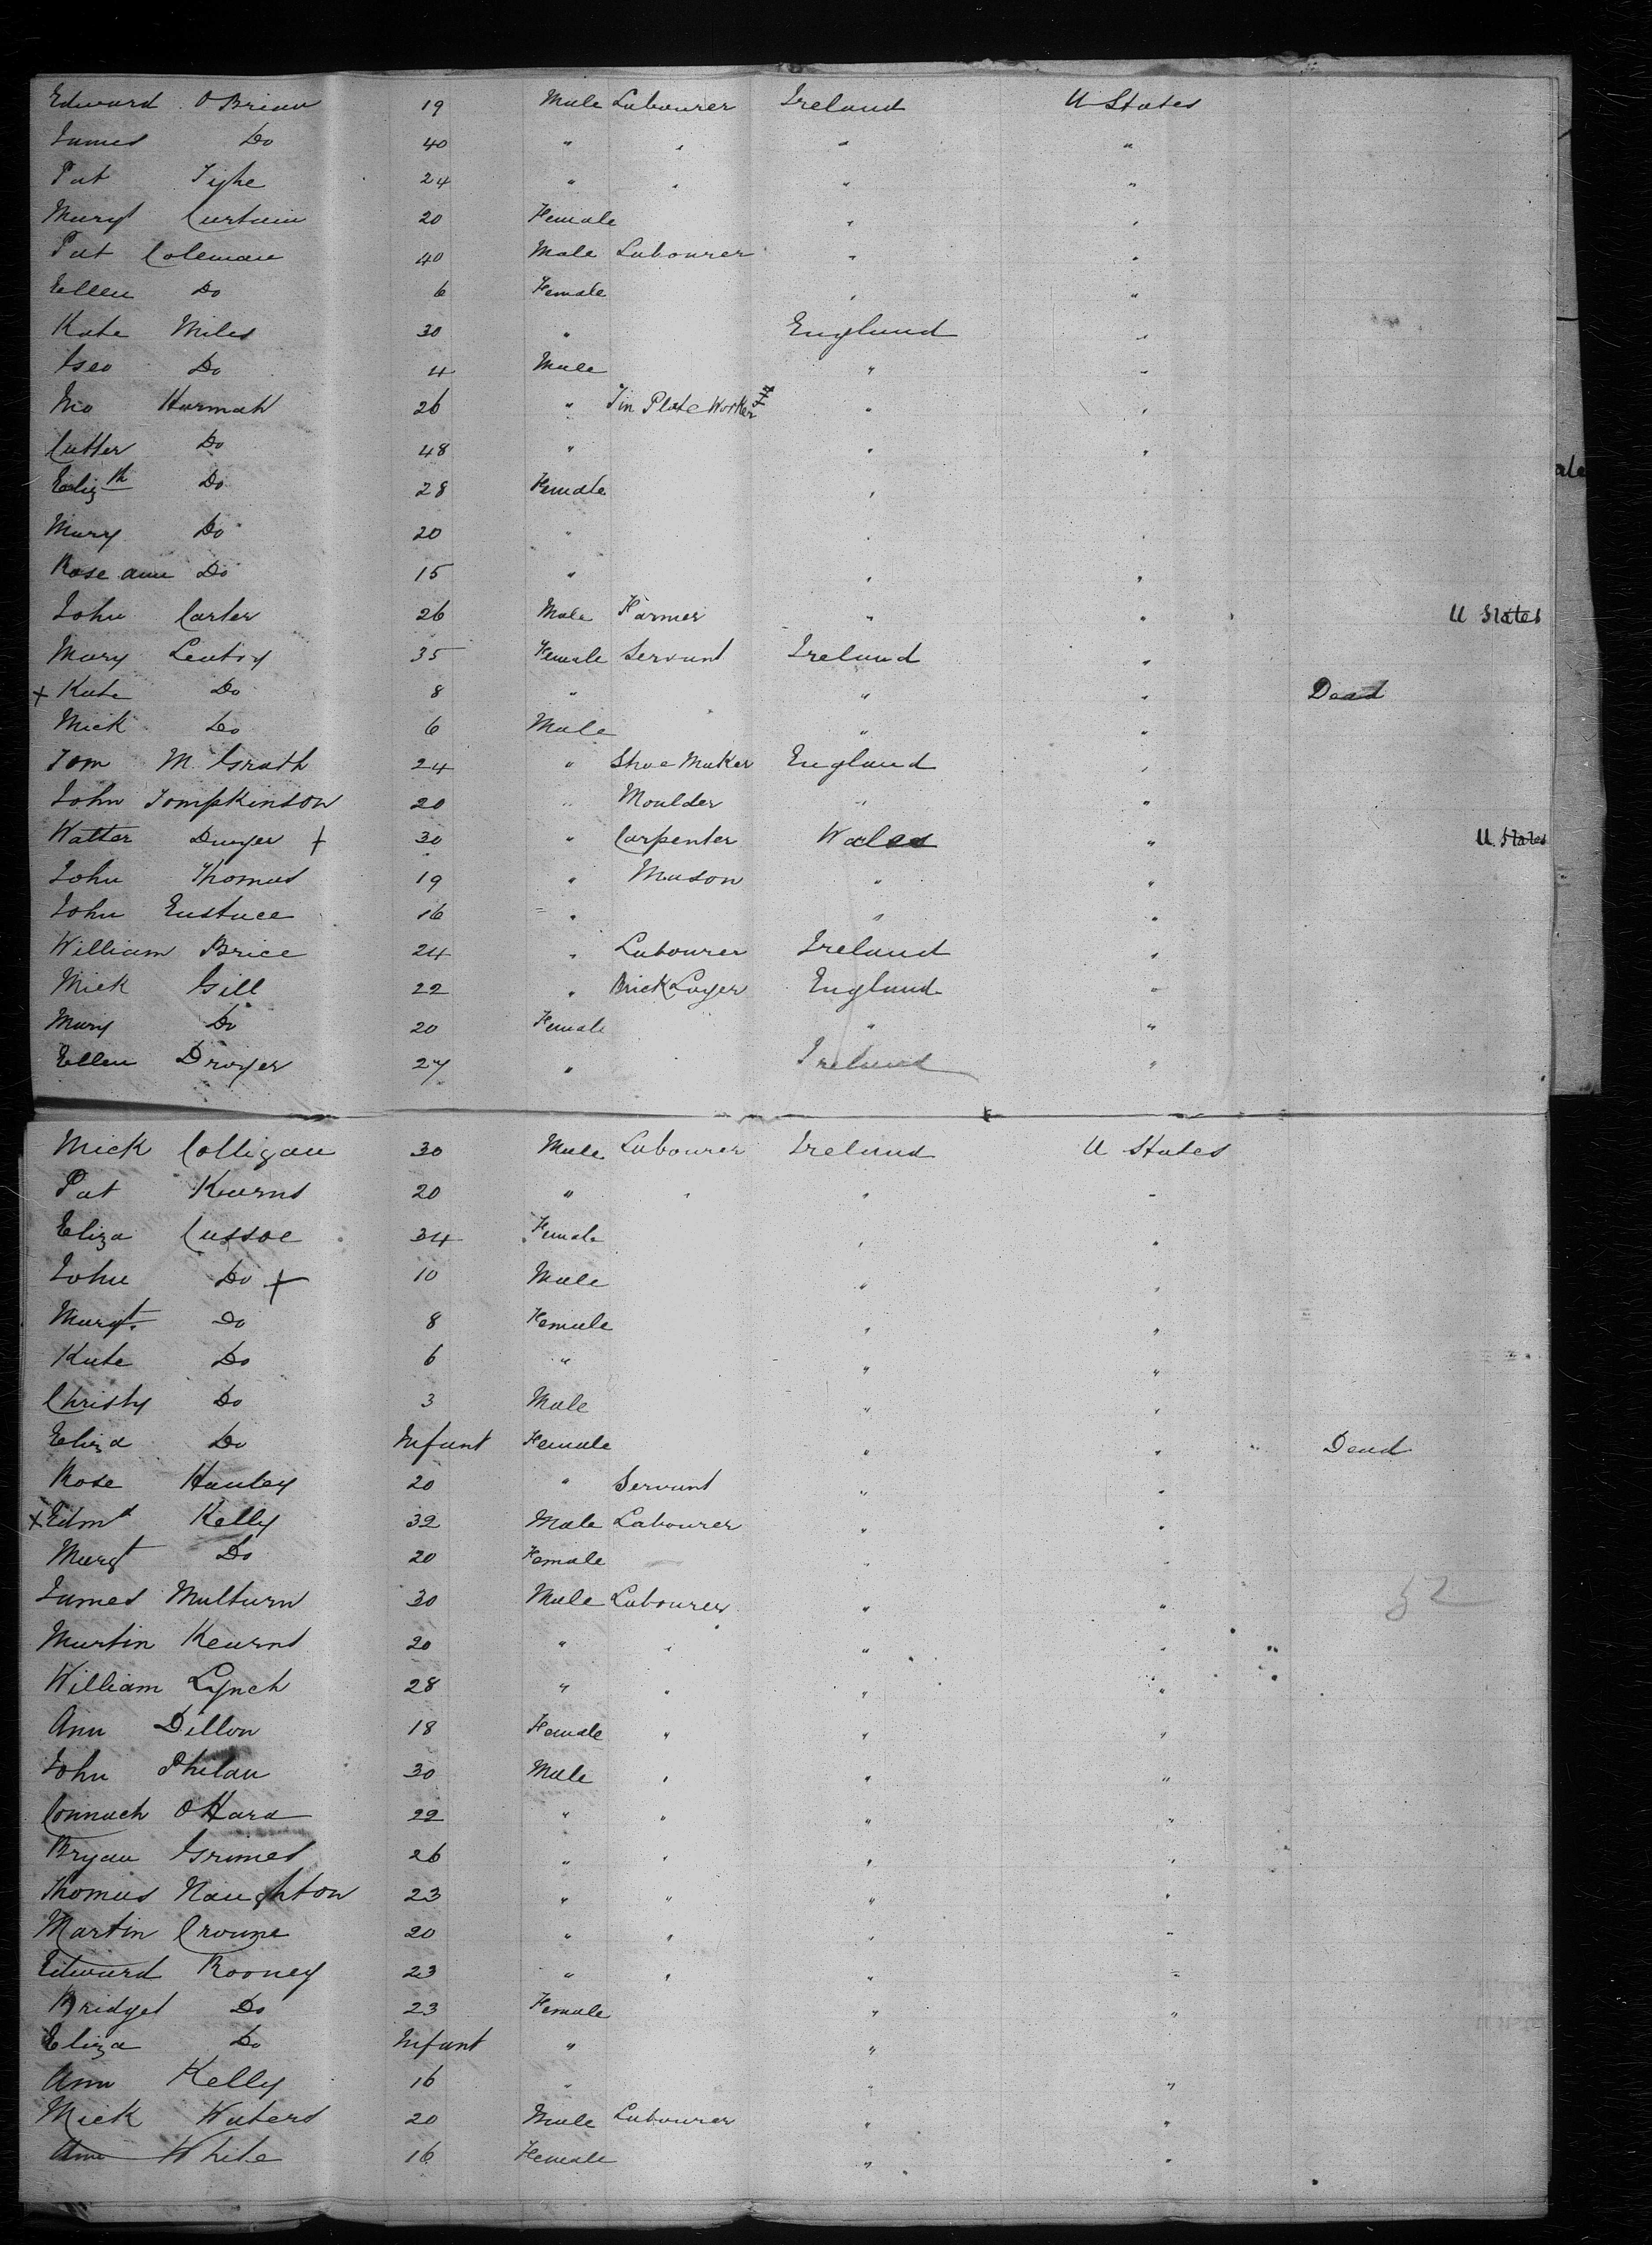 Edward O Brien 19 Male Labourer Ireland U States
James Do 40 " " " "
Pat Tighe 24 " " " "
Margt Curtain 20 Female " "
Pat Coleman 40 Male Labourer " "
Ellen Do 6 Female " "
Kate Miles 30 " England "
Geo Do 4 Male " "
Do Harmah 26 " Tin Plate Worker " "
Do 48 " " "
Elizth Do 28 Female "
Mary Do 20 " "
Rose ann Do 15 " " "
John Carter 26 Male Farmer " " U States
Mary 35 Female Servant Ireland "
+ Kate Do 8 " " " Dead
Mick Do 6 Male " "
Tom M Grath 24 " Shoe Maker England "
John Tompkinson 20 " Moulder " "
Walter Dwyer + 30 " Carpenter Wales " U States
John Thomas 19 " Mason " "
John Eustace 16 " " "
William Brice 24 " Labourer Ireland "
Mick Gill 22 " Brick Layer England "
Mary Do 20 Female " "
Ellen Drayer 27 " Ireland "
Mick Colligan 30 Male Labourer Ireland U States
Pat Kearns 20 " " " "
Eliza Cussoe 34 Female " "
John Do + 10 Male " "
Margt. Do 8 Female " "
Kate Do 6 " " "
Christy Do 3 Male " "
Eliza Do Infant Female " " Dead
Rose Hanley 20 " Servant " "
+ Edmd Kelly 32 Male Labourer " "
Margt Do 20 Female " "
James Multurn 30 Male Labourer " "
52
Martin Kearns 20 " " " "
William Lynch 28 " " " "
Ann Dillon 18 Female " " "
John Philan 30 Male " " "
Connach O Hara 22 " " " "
Bryan Grimes 26 " " " "
Thomas Naughton 23 " " " "
Martin Croune 20 " " " "
Edward Rooney 23 " " " "
Bridget Do 23 Female " "
Eliza Do Infant " "
Ann Kelly 16 " " "
Mick Waters 20 Male Labourer " "
Ann White 16 Female " "